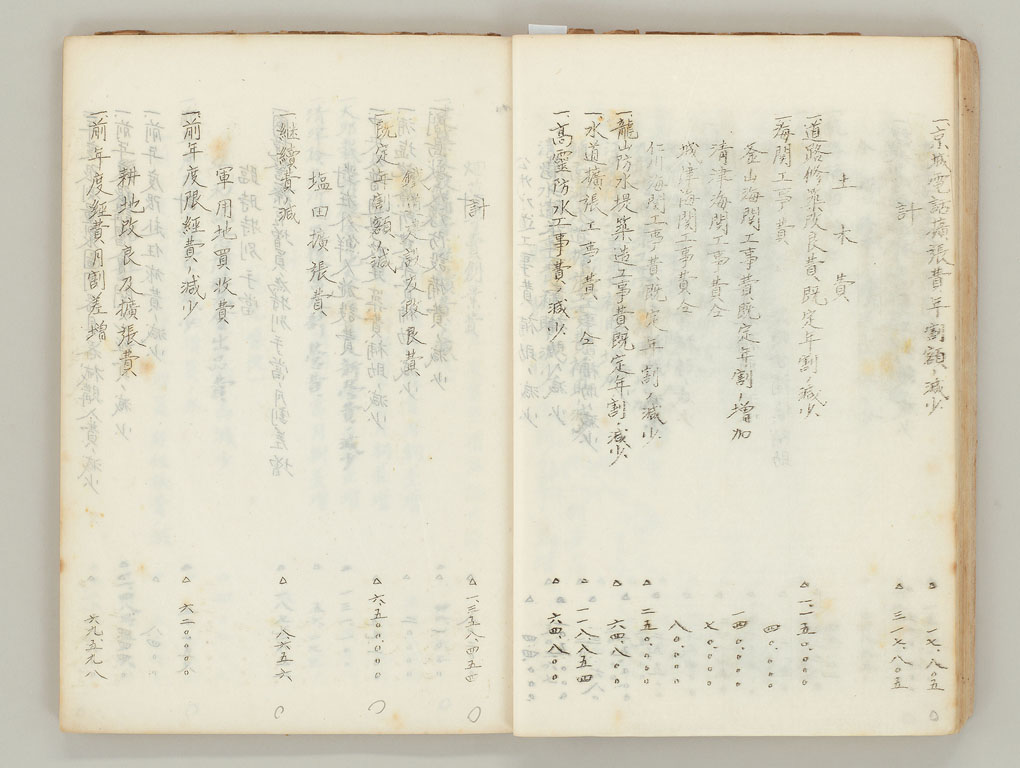 一、京城電話擴張費年割額ノ減少 △一七、八〇五
計 △三一七、八〇五
土木費
一、道路修築改良費既定年割ノ減少 △一、一五〇、〇〇〇
一、海関工事費 四〇、〇〇〇
釜山海関工事費既定年割ノ増加 一四〇、〇〇〇
清津海関工事費仝 七〇、〇〇〇
城津海関工事費仝 八〇、〇〇〇
仁川海関工事費既定年割ノ減少 △二五〇、〇〇〇
一、龍山防水堤築造工事費既定年割ノ減少 △六四、八〇〇
一、水道擴張工事費仝 △一一八、八五四
一、高霊防水工事費ノ減少 △六四、八〇〇
計 △一、三五八、四五四
一、既定年割額ノ減 △六五〇、〇〇〇
塩田擴張費
一、継續費ノ減 △八六五六
軍用地買收費
一、前年度限經費ノ減少 △六二〇、〇〇〇
耕地改良及擴張費
一、前年度經費月割差增 六九、五九八